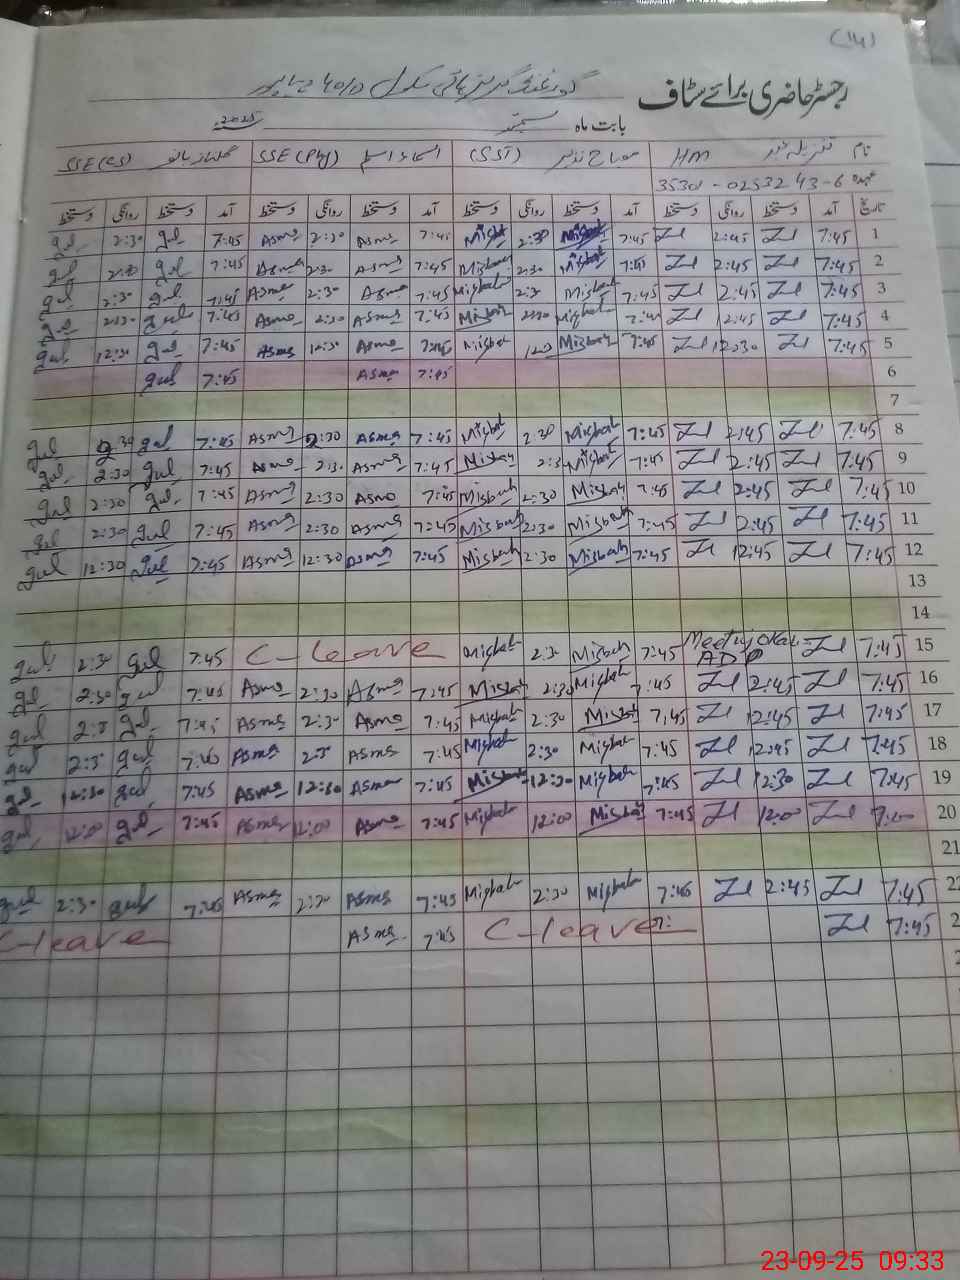 (14)
رجسٹر حاضری برائے سٹاف گورنمنٹ گرلز ہائی سکول 40/D دیپالپور
بابت ماہ ستمبر 2025
نام HM مصباح نذیر (SST) اسماء اسلم SSE(Phy) گلناز بانو SSE(CS)
عہدہ 35301-0253243-6
تاریخ آمد دستخط روانگی دستخط آمد دستخط روانگی دستخط آمد دستخط روانگی دستخط آمد دستخط روانگی دستخط
1 7:45 2:45 7:45 Misbah 2:30 Misbah 7:45 Asma 2:30 Asma 7:45 gul 2:30 gul
2 7:45 2:45 7:45 Misbah 2:30 Misbah 7:45 Asma 2:30 Asma 7:45 gul 2:30 gul
3 7:45 2:45 7:45 Misbah 2:30 Misbah 7:45 Asma 2:30 Asma 7:45 gul 2:30 gul
4 7:45 12:45 7:45 Misbah 2:30 Misbah 7:45 Asma 2:30 Asma 7:45 gul 2:30 gul
5 7:45 12:30 7:45 Misbah Misbah 7:45 Asma 12:30 Asma 7:45 gul 12:30 gul
6 7:45 Asma 7:45 gul
7
8 7:45 2:45 7:45 Misbah 2:30 Misbah 7:45 Asma 2:30 Asma 7:45 gul 2:30 gul
9 7:45 2:45 7:45 Misbah 2:3 Misbah 7:45 Asma 2:30 Asma 7:45 gul 2:30 gul
10 7:45 2:45 7:45 Misbah 2:30 Misbah 7:45 Asma 2:30 Asma 7:45 gul 2:30 gul
11 7:45 2:45 7:45 Misbah 2:30 Misbah 7:45 Asma 2:30 Asma 7:45 gul 2:30 gul
12 7:45 12:45 7:45 Misbah 2:30 Misbah 7:45 Asma 12:30 Asma 7:45 gul 12:30 gul
13
14
15 7:45 7:45 Misbah 2:30 Misbah C-leave 7:45 gul 2:30 gul
16 7:45 2:45 7:45 Misbah 2:30 Misbah 7:45 Asma 2:30 Asma 7:45 gul 2:30 gul
17 7:45 12:45 7:45 Misbah 2:30 Misbah 7:45 Asma 2:30 Asma 7:45 gul 2:3 gul
18 7:45 12:45 7:45 Misbah 2:30 Misbah 7:45 Asma 2:3 Asma 7:45 gul 2:3 gul
19 7:45 12:30 7:45 Misbah 12:30 Misbah 7:45 Asma 12:30 Asma 7:45 gul 12:30 gul
20 12:00 7:45 Misbah 12:00 Misbah 7:45 Asma 12:00 Asma 7:45 gul 12:00 gul
21
22 7:45 2:45 7:45 Misbah 2:30 Misbah 7:45 Asma 2:30 Asma 7:45 gul 2:30 gul
2 7:45 7: C-leave 7:45 Asma C-leave
23-09-25 09:33